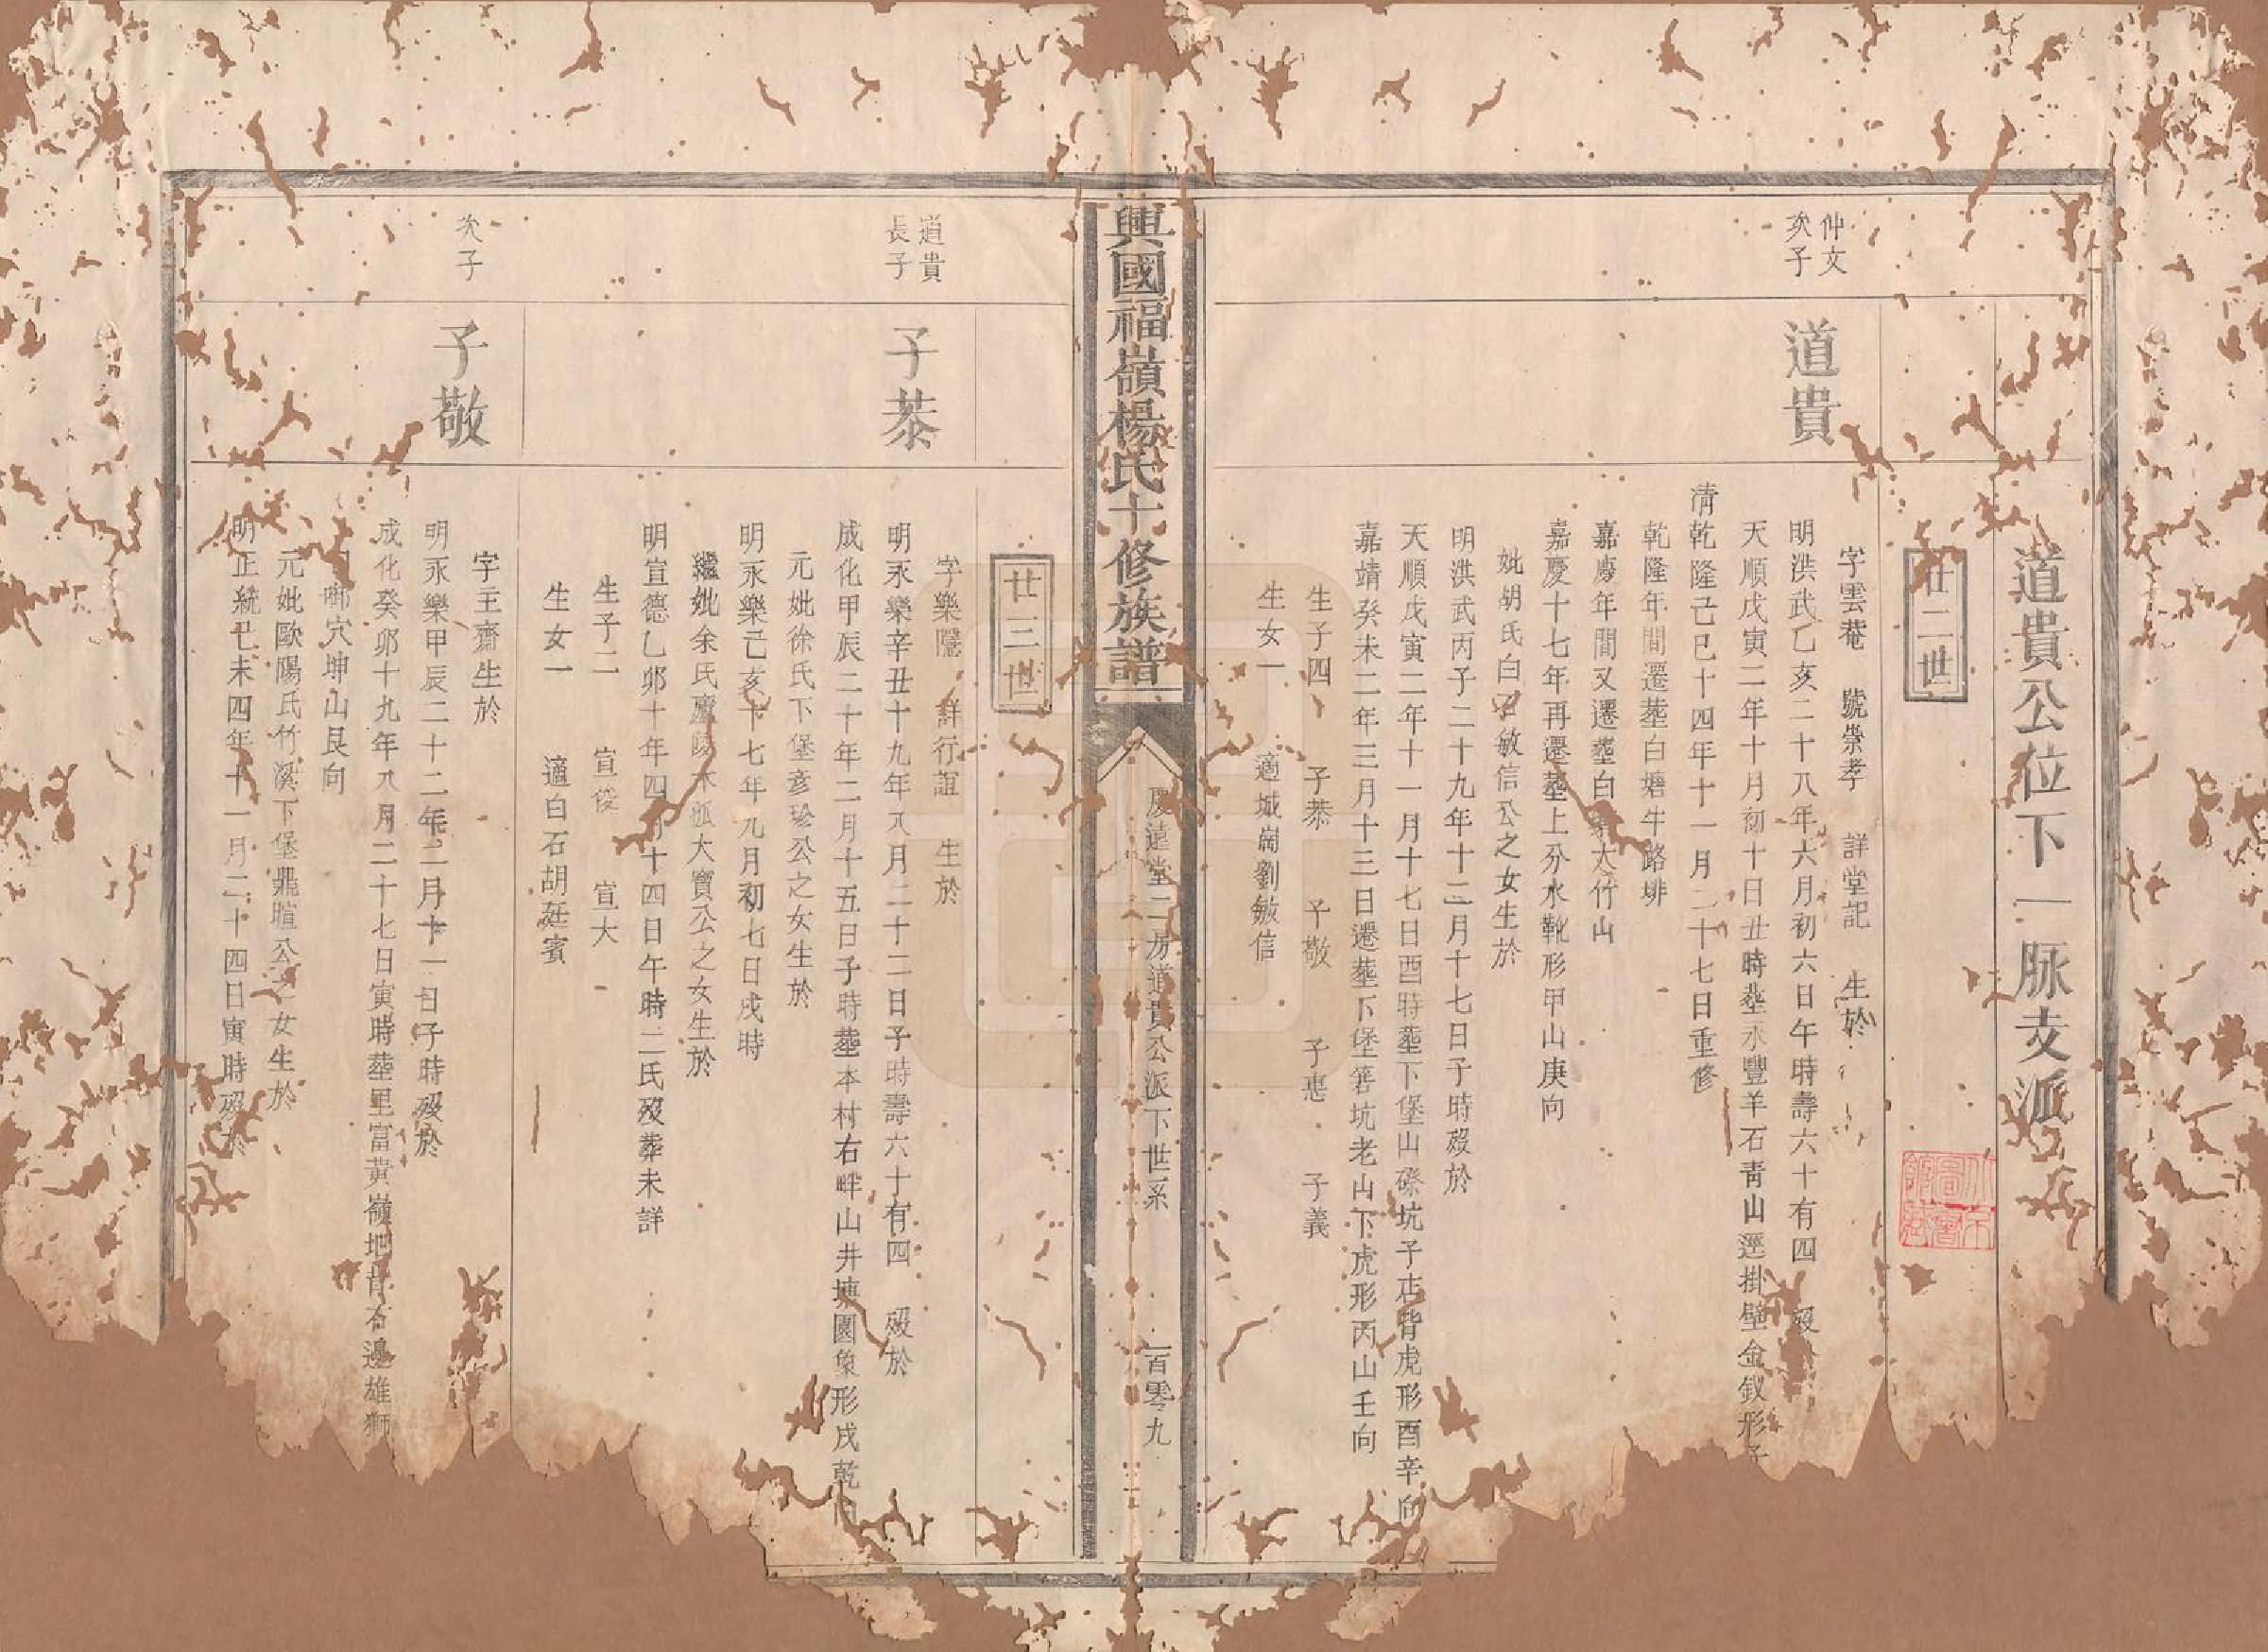 道貴公位下一脉支派
廿二世
仲文
次子
道貴
字雲菴 號崇孝 詳堂記 生於
明洪武乙亥二十八年六月初六日午時壽六十有四 歿
天順戊寅二年十月初十日丑時塟永豐羊石青山逕掛壁金釵形子
清乾隆己巳十四年十一月二十七日重修
乾隆年間遷塟白塘牛路排
嘉慶年間又遷塟白 大竹山
嘉慶十七年再遷塟上分水靴形甲山庚向
妣胡氏白石敏信公之女生於
明洪武丙子二十九年十二月十七日子時歿於
天順戊寅二年十一月十七日酉時塟下堡山磜坑子店背虎形酉辛向
嘉靖癸未二年三月十三日遷塟下堡箬坑老山下虎形丙山壬向
生子四 子恭 子敬 子惠 子義
生女一 適城崗劉敏信
興國福嶺楊氏十修族譜
慶遠堂二房道貴公派下世系
一百零九
廿三世
道貴
長子
子恭
字樂隱 詳行誼 生於
明永樂辛丑十九年八月二十二日子時壽六十有四 歿於
成化甲辰二十年二月十五日子時塟本村右畔山井塘園象形戌乾向
元妣徐氏下堡彥珍公之女生於
明永樂己亥十七年九月初七日戌時
繼妣余氏廬陵木派大寶公之女生於
明宣德乙卯十年四月十四日午時二氏歿葬未詳
生子二 宣俊 宣大
生女一 適白石胡廷賓
次子
子敬
字主齋生於
明永樂甲辰二十二年二月十一日子時歿於
成化癸卯十九年八月二十七日寅時塟里富黃嶺坦背右邊雄獅
穴坤山艮向
元妣歐陽氏竹溪下堡鼎暄公之女生於
明正統己未四年十一月二十四日寅時歿於